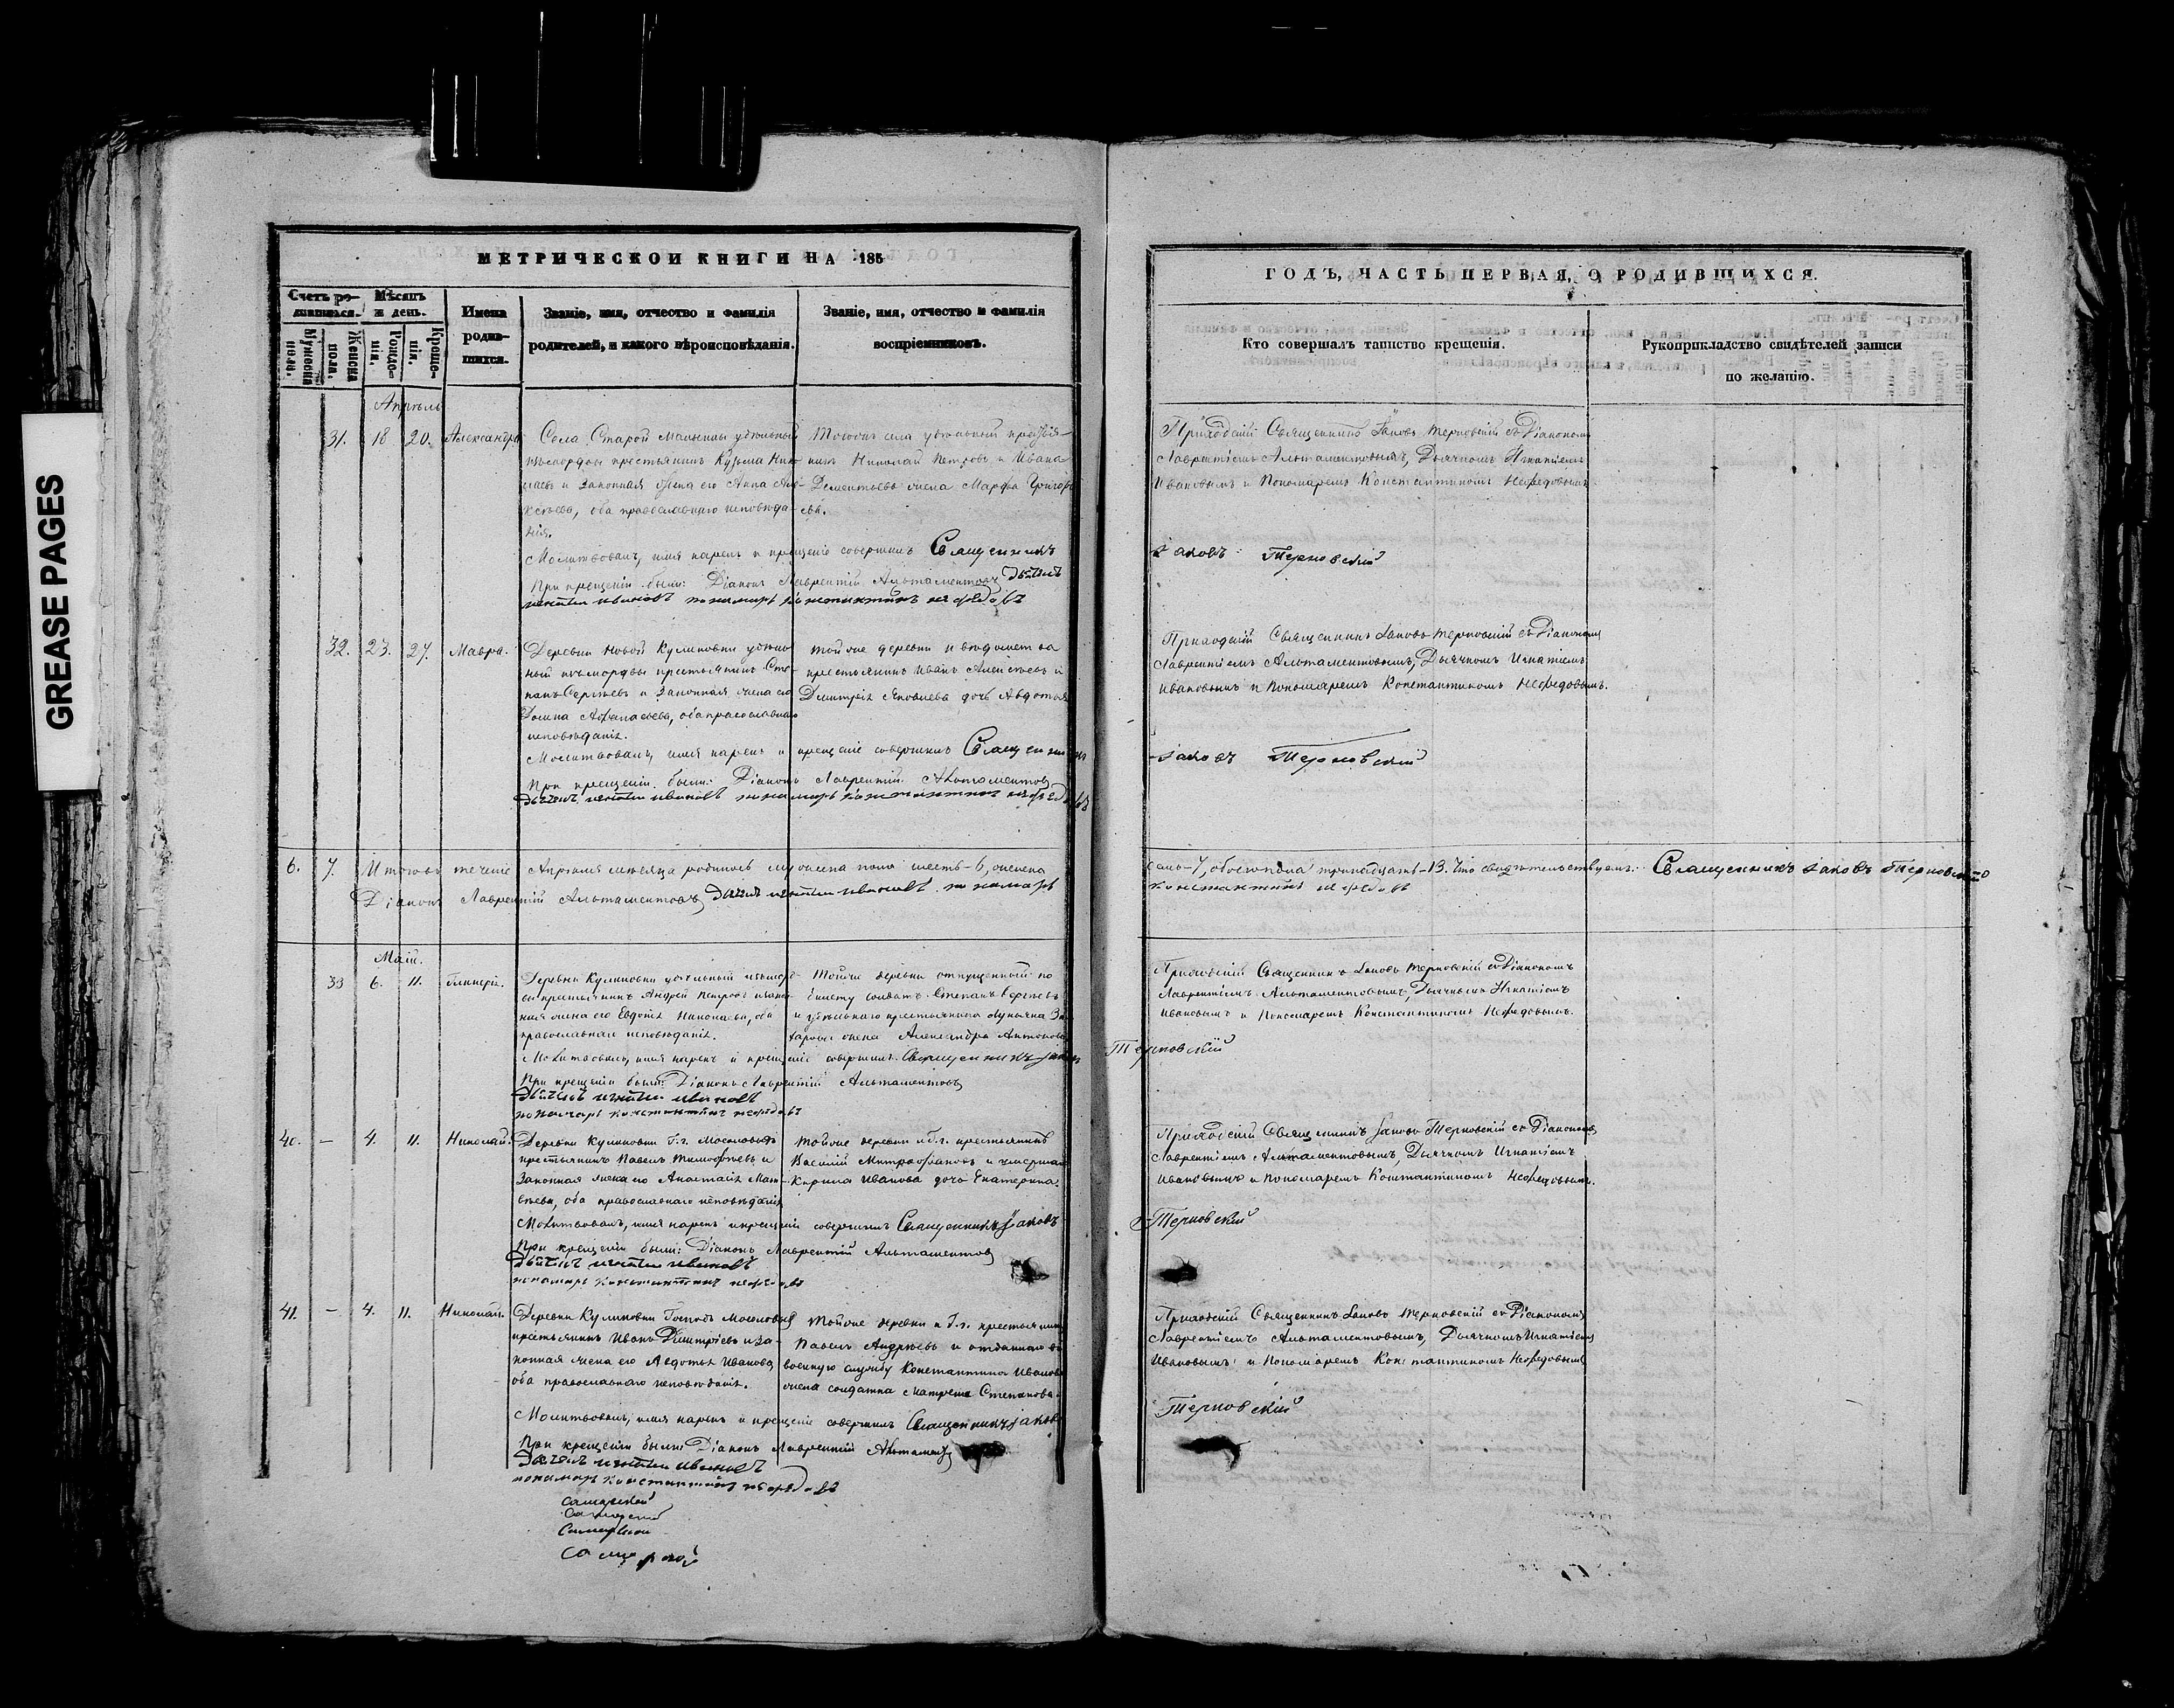 GREASE PAGES
МЕТРИЧЕСКОЙ КНИГИ НА 185
Счетъ родившихся.
Мѣсяцъ и день.
Имена родившихся.
Званіе, имя, отчество и фамилія
родителей, и какого вѣроисповѣданія.
Званіе, имя, отчество и фамилія
воспріемниковъ.
Мужеска пола.
Женска пола.
Рожденія.
Крещенія.
Апрѣль
31. 18 20. Александра
Села Старой удѣльный
крестьянинъ Кузьма Нико
лаевъ и законная жена его Анна Але-
ксѣева, оба православнаго исповѣда-
нія.
Тогожъ села удѣльный
Николай Петровъ и Ивана
Дементьева жена Марфа Григорь
ева.
Молитвовалъ, имя нарекъ и крещеніе совершилъ Священникъ
При крещеніи были: Діаконъ Лаврентій Альтаментовъ дьячекъ
игнатий ивановъ понамарь константинъ нефедовъ
32. 23. 27. Мавра.
Деревни Новой Куликовки удѣль
ный изъ мордвы крестьянинъ Сте
панъ Сергѣевъ и законная жена его
Домна Афанасьева, оба православнаго
исповѣданія.
Тойже деревни и вѣдомства
крестьянинъ Иванъ Алексѣевъ и
Дмитрія Яковлева дочь Авдотья
Молитвовалъ, имя нарекъ и крещеніе совершилъ Священникъ
При крещеніи были: Діаконъ Лаврентій Альтаментовъ
дьячекъ игнатий ивановъ понамарь константинъ нефедовъ
6. 7. Итого въ теченіе Апрѣля мѣсяца родилось мужеска пола шесть-6, женска
Діаконъ Лаврентій Альтаментовъ дьячекъ игнатий ивановъ понамарь
Май.
33 6. 11. Гликерія.
Деревни Куликовки удѣльный изъ морд-
вы крестьянинъ Андрей Петровъ и закон
ная жена его Евдотія Николаева, оба
православнаго исповѣданія.
Тойже деревни отпущенный по
билету солдатъ Степанъ Сергѣевъ
и удѣльнаго крестьянина Лукьяна За
харова жена Александра Антонова
Молитвовалъ, имя нарекъ и крещеніе совершилъ Священникъ Іаковъ
При крещеніи были: Діаконъ Лаврентій Альтаментовъ
дьячекъ игнатий ивановъ
понамарь константинъ нефедовъ
40. — 4. 11. Николай.
Деревни Куликовки Г.г. Мосоловыхъ
крестьянинъ Павелъ Тимофѣевъ и
законная жена его Анастасія Мат-
вѣева, оба православнаго исповѣданія
Тойже деревни и Г.г. крестьянинъ
Василій Митрофановъ и умершаго
Кирила Иванова дочь Екатерина.
Молитвовалъ, имя нарекъ и крещеніе совершилъ Священникъ Іаковъ
При крещеніи были: Діаконъ Лаврентій Альтаментовъ
дьячекъ игнатий ивановъ
понамарь константинъ нефедовъ
41. — 4. 11. Николай.
Деревни Куликовки Господъ Мосоловыхъ
крестьянинъ Иванъ Дмитріевъ и за-
конная жена его Авдотья Иванова,
оба православнаго исповѣданія.
Тойже деревни и Г.г. крестьянинъ
Павелъ Андрѣевъ и отданнаго въ
военную службу Константина Иванова
жена солдатка Матрена Степанова.
Молитвовалъ, имя нарекъ и крещеніе совершилъ Священникъ Іаковъ
При крещеніи были: Діаконъ Лаврентій Альтаментовъ
дьячекъ игнатий ивановъ
понамарь константинъ нефедовъ
ГОДЪ, ЧАСТЬ ПЕРВАЯ, О РОДИВШИХСЯ.
Кто совершалъ таинство крещенія.
Рукоприкладство свидѣтелей записи
по желанію.
Приходскій Священникъ Іаковъ Терновскій съ Діакономъ
Лаврентіемъ Альтаментовымъ, Дьячкомъ Игнатіемъ
Ивановымъ и Пономаремъ Константиномъ Нефедовымъ.
Іаковъ Терновский
Приходскій Священникъ Іаковъ Терновскій съ Діакономъ
Лаврентіемъ Альтаментовымъ, Дьячкомъ Игнатіемъ
Ивановымъ и Пономаремъ Константиномъ Нефедовымъ.
Іаковъ Терновский
семь-7, обоего пола тринадцать-13. Что свидѣтельствуемъ: Священникъ Іаковъ Терновский
константинъ нефедовъ
Приходскій Священникъ Іаковъ Терновскій съ Діакономъ
Лаврентіемъ Альтаментовымъ, Дьячкомъ Игнатіемъ
Ивановымъ и Пономаремъ Константиномъ Нефедовымъ.
Терновскій
Приходскій Священникъ Іаковъ Терновскій съ Діакономъ
Лаврентіемъ Альтаментовымъ, Дьячкомъ Игнатіемъ
Ивановымъ и Пономаремъ Константиномъ Нефедовымъ.
Терновскій
Приходскій Священникъ Іаковъ Терновскій съ Діакономъ
Лаврентіемъ Альтаментовымъ, Дьячкомъ Игнатіемъ
Ивановымъ и Пономаремъ Константиномъ Нефедовымъ
Терновскій